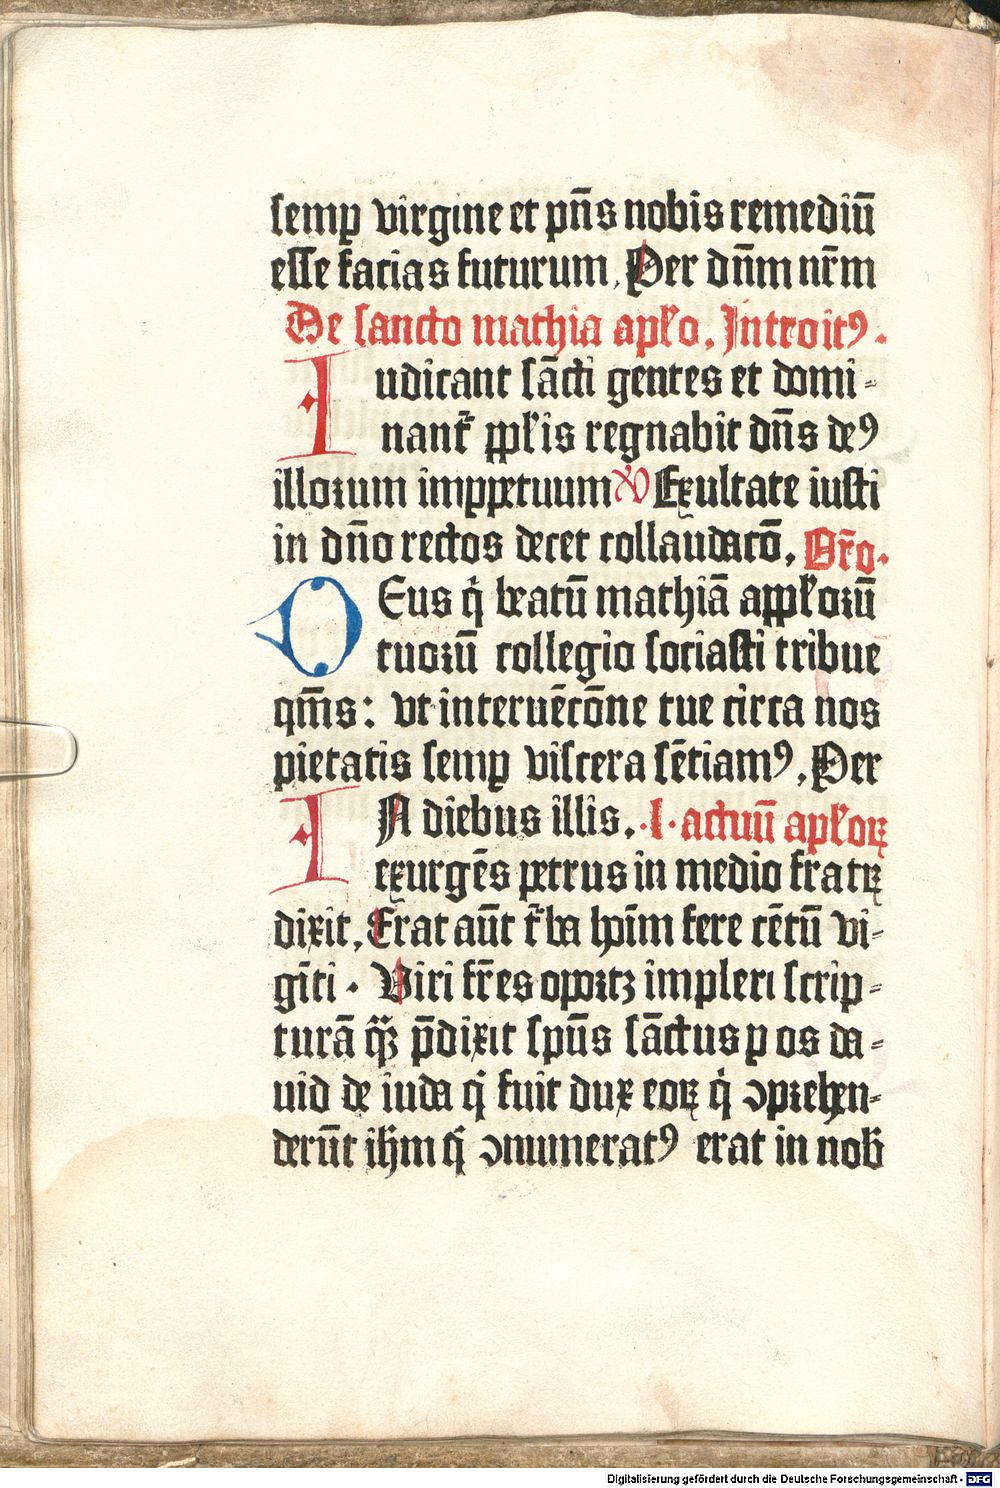 semꝑ virgine et pn̄s nobis remediū
esse facias futurum. Per dn̄m nr̄m
De sancto mathia apl'o. Introitꝰ.
Iudicant sācti gentes et domi-
nant᷑ ppl'is regnabit dn̄s deꝰ
illoꝛum imꝑpetuum ℣ Exultate iusti
in dn̄o rectos decet collaudacō. Or̄o.
DEus q̇ beatū mathiā appl'oꝛū
tuoꝛū collegio sociasti tribue
qm̄s: vt interuēcōne tue circa nos
pietatis semꝑ viscera sētiamꝰ. Per
IN diebus illis. .l. actuū apl'oꝝ
exurgēs petrus in medio fratꝝ
dixit. Erat aūt t᷑ba hoīm fere cētū vi-
gīti. Viri fr̄es opoꝛtꝫ impleri scrip-
turā q̄ꝫ p̄dixit spūs sāctus ꝑ os da-
uid de iuda q̇ fuit dux eoꝝ q̇ ↄpꝛehen-
derūt ih̄m q̇ ↄnumeratꝰ erat in nob̄
Digitalisierung gefördert durch die Deutsche Forschungsgemeinschaft - DFG